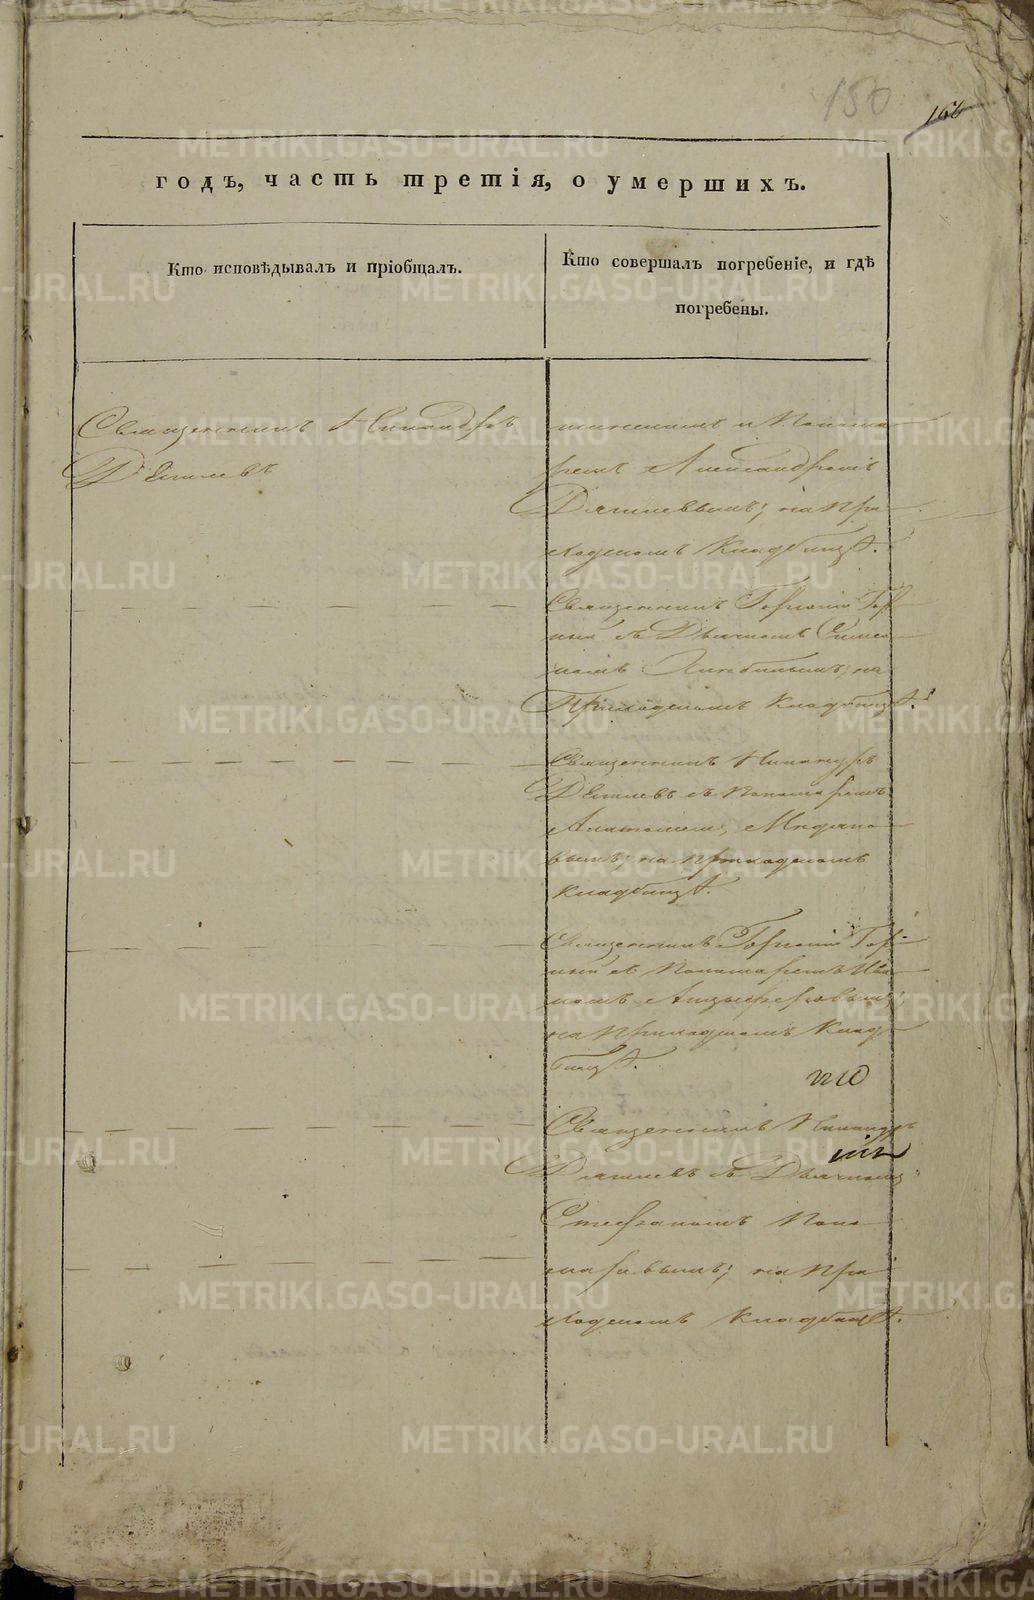 150
годъ, часть третія, о умершихъ.
Кто исповѣдывалъ и пріобщалъ.
Кто совершалъ погребеніе, и гдѣ
погребены.
Священникъ Никандръ
тинскимъ и Понома
ремъ Александромъ
на при
ходскомъ Кладбищѣ.
Священникъ Горгоній Гор
ный съ Дьячкомъ Симео
номъ на
Приходскомъ Кладбищѣ.
Священникъ Никандръ
съ Пономаремъ
на приходскомъ
Кладбищѣ.
Священникъ Горгоній Гор
ный съ Пономаремъ Ива
номъ
на Приходскомъ Клад
бищѣ.
Священникъ Никандръ
съ Дьячкомъ
Стефаномъ Поно
маревымъ; на При
ходскомъ Кладбищѣ.
METRIKI.GASO-URAL.RU